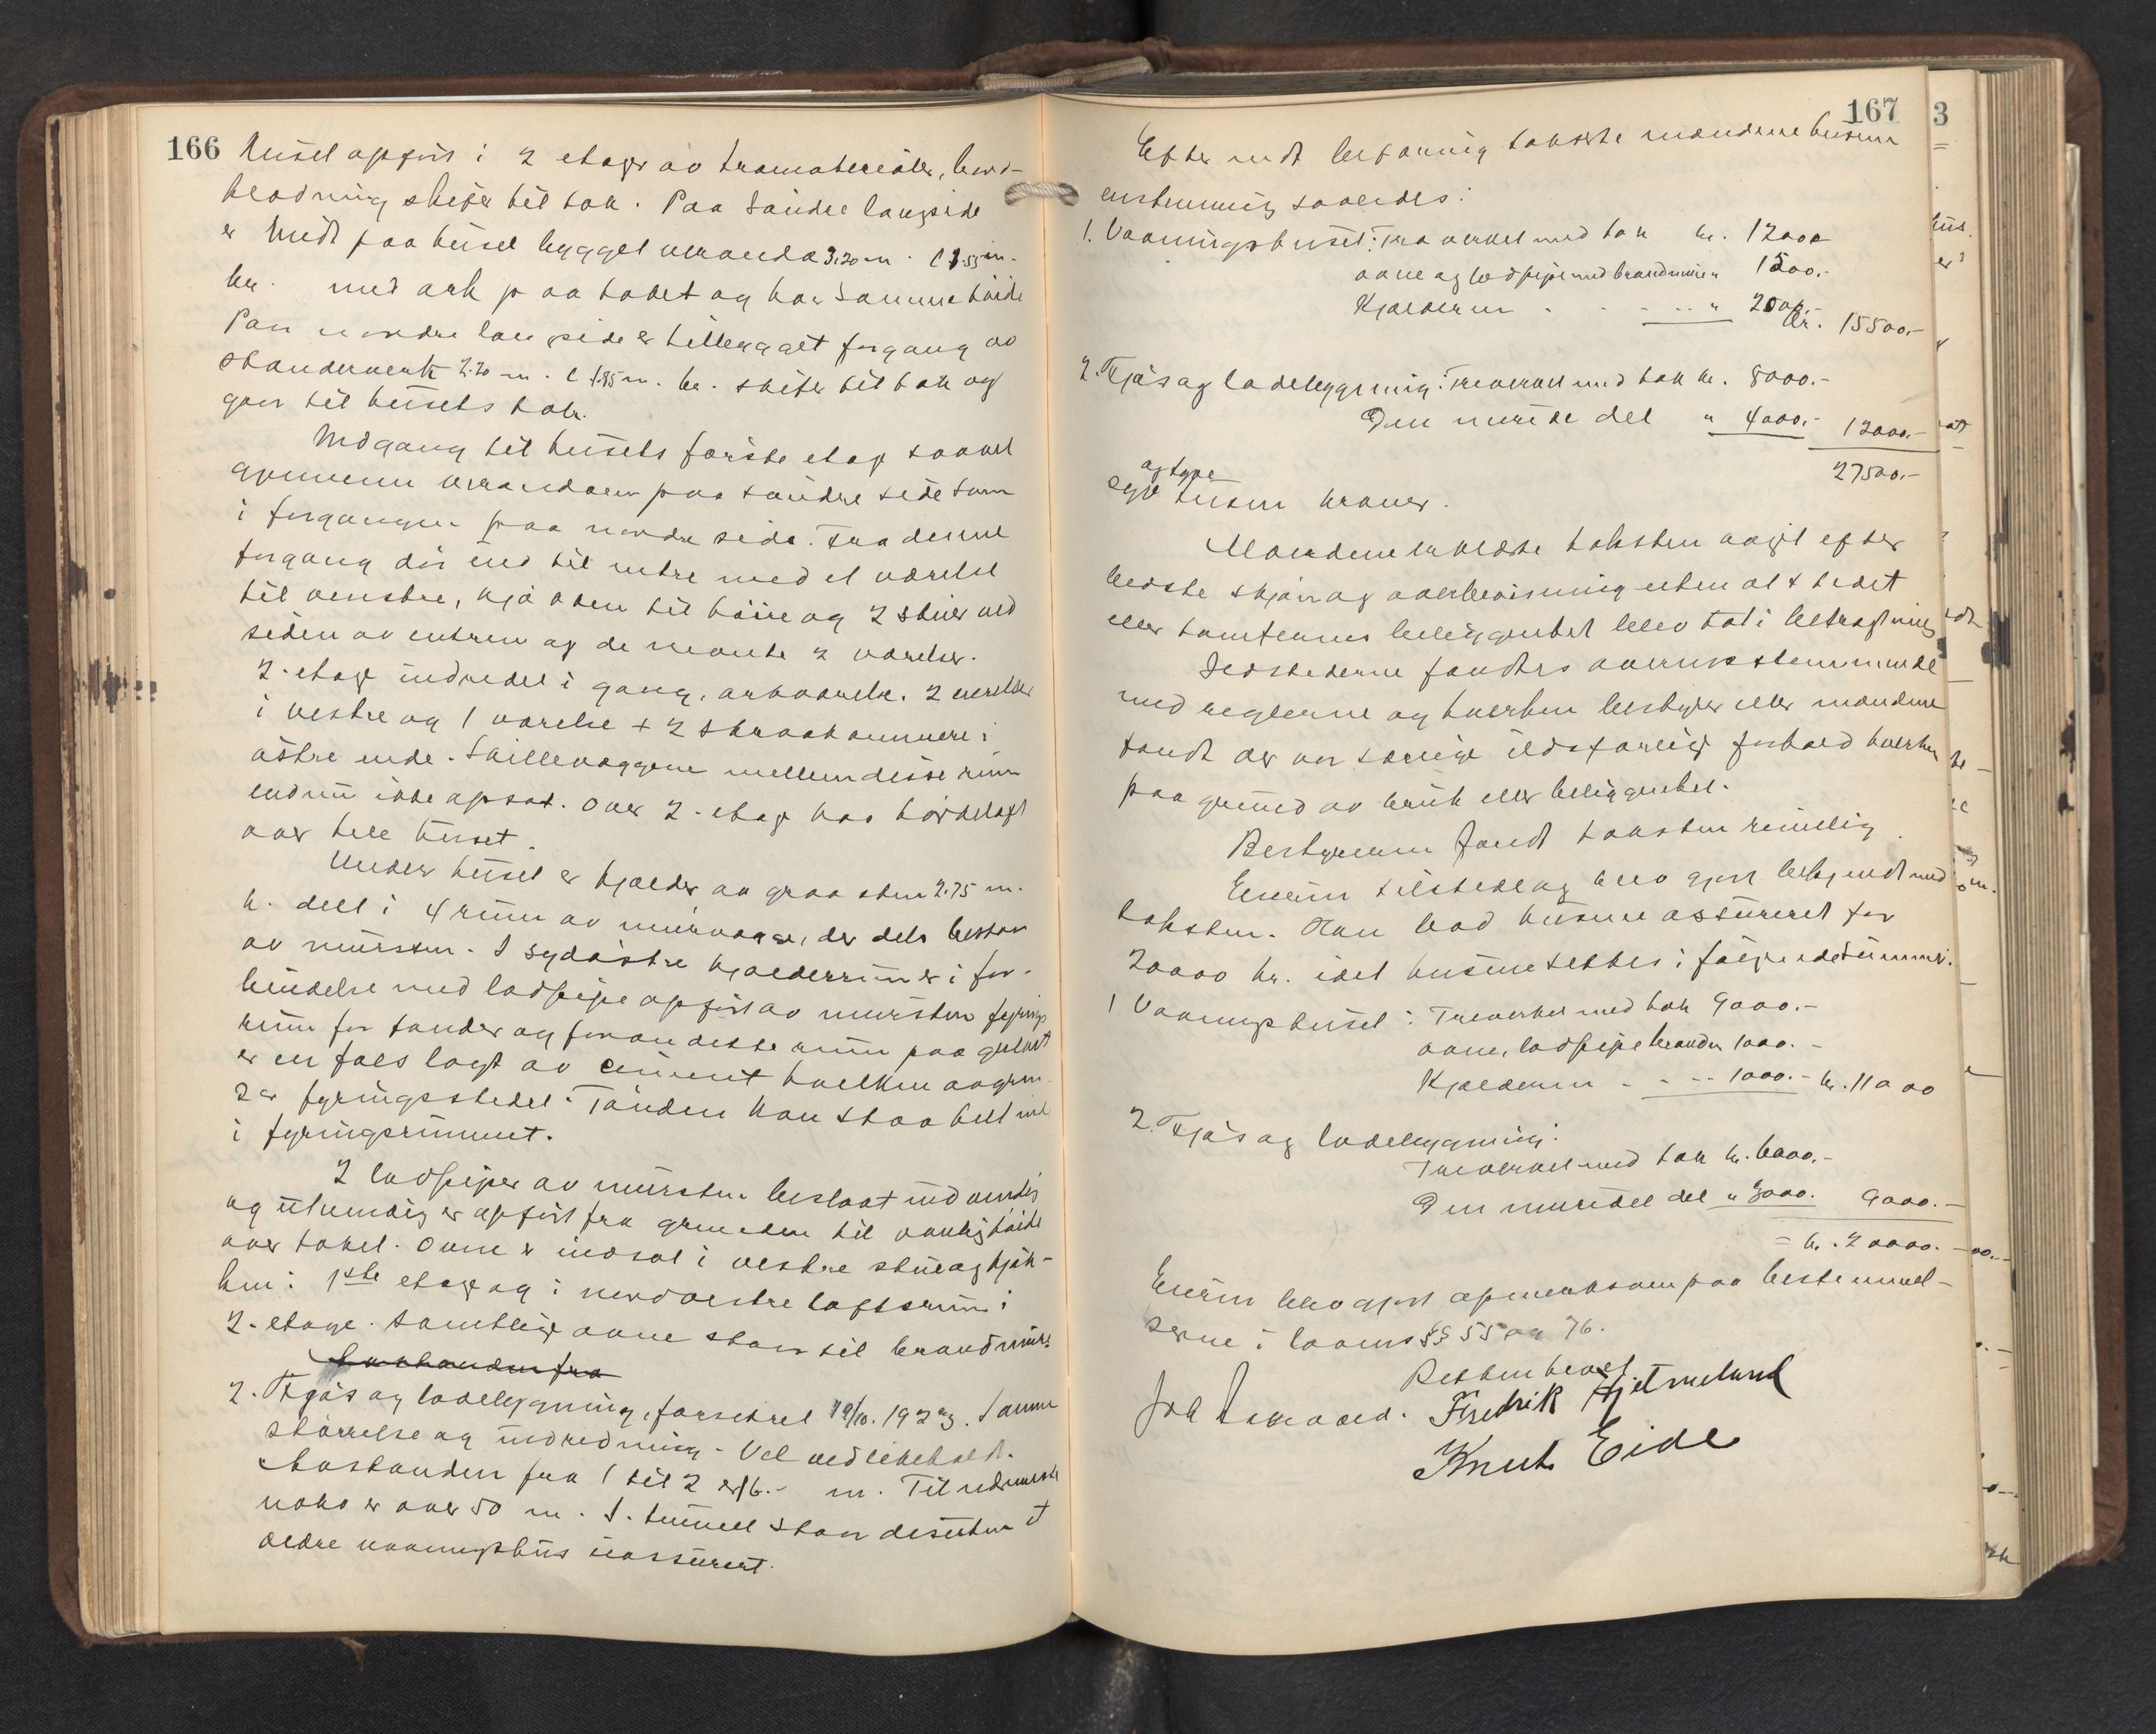 166
Huset opført i 2 etager av træmaterialer, bord-
klædning skifer til tak. Paa søndre langside
er midt paa huset bygget veranda 3.20 m. l 1.55 m.
br. med ark paa taket og har samme høide
Paa nordre langside er tilbygget forgang av
standerverk 2.20 m. l 1.85 m. br. skifer til tak og
gaar til husets tak.
Indgang til husets første etage saavel
gjennem verandaen paa søndre side som
i forgangen paa nordre side. Fra denne
forgang dør ind til entre med et værelse
til venstre, kjøkken til høire og 2 stuer ved
siden av entreen og de nævnte 2 værelser.
2. etage indredet i gang, arkværelse, 2 værelser
i vestre og 1 værelse + 2 skraakammere i
østre ende. Skillevæggene mellem disse rum
endnu ikke opsat. Over 2. etage
over hele huset.
Under huset er kjælder av graasten 2.75 m.
h. delt i 4 rum av murvægge, der dels bestaar
av mursten. I sydøstre kjælderrum er i for-
bindelse med ladpipe opført av mursten fyrings
rum for tønder og foran dette rum paa gulvet
er en fals lagt av cement hvilken avgræn-
ser fyringsstedet. Tønden kan staa helt ind
i fyringsrummet.
2 ladpiper av mursten beslaat indvendig
og utvendig er opført fra grunden til vanlig høide
over taket. Ovne er indsat i vestre stue og kjøk-
ken i 1ste etage og i nordvestre loftsrum i
2. etage. Samtlige ovne staar til brandmure.
Avstanden fra
2. Fjøs og ladebygning, forsikret 19/10. 1923. Samme
størrelse og indredning. Vel vedlikeholdt.
Avstanden fra 1 til 2 er 16.- m. Til nærmeste
nabo er over 50 m. I tunnet staar desuten et
ældre vaaningshus uassurert.
167
Efter endt befaring takserte mændene husene
enstemmig saaledes:
1. Vaaningshuset: Træverket med tak kr. 12000
ovne og ladpipe med brandmure " 1500.-
Kjælderen . . . . " 2000.-
Kr. 15500.-
2. Fjøs og ladebygning: Træverket med tak kr. 8000.-
Den murede del " 4000.- 12000.-
27500.-
og tyve
syv tusen kroner.
Mændene erklærte taksten avgit efter
bedste skjøn og overbevisning uten at stedet
eller tomtenes beliggenhet blev tat i betragtning
Ildstederne fandtes overensstemmende
med reglerne og hverken bestyrer eller mændene
fandt der var særlige ildsfarlige forhold hverken
paa grund av bruk eller beliggenhet.
Bestyreren fandt taksten rimelig.
Eieren tilstede og blev gjort bekjendt med
taksten. Han bad husene assureret for
20000 kr. idet husene settes i følgende summer.
1 Vaaningshuset: Træverket med tak 9000.-
ovne, ladpipe brandm 1000.-
Kjælderen . . . . 1000.- kr. 11000
2. Fjøs og ladebygning:
Træverket med tak kr. 6000.-
Den murede del " 3000. 9000.-
= kr. 20000.-
Eieren blev gjort opmerksom paa bestemmel-
serne i lovens §§ 55 og 76.
Retten hevet
Fredrik Hjetmeland
Knut Eide
3